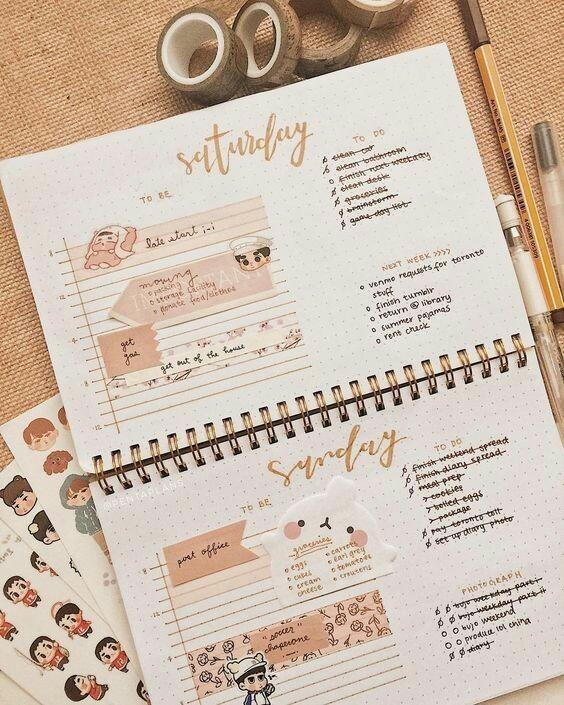 saturday
TO BE
late start ;-;
moving
packing
storage facility
donate food/clothes
get gas
get out of the house
8
12
4
8
12
TO DO
clean car
clean bathroom
finish next weekday
clean desk
groceries
brainstorm
game day list
NEXT WEEK >>>>
venmo requests for toronto
stuff
finish tumblr
return @ library
summer pajamas
rent check
sunday
TO BE
post office
groceries
eggs
cukes
cream
cheese
carrots
earl grey
tomatoes
croutons
8
12
4
"soccer"
chaperone
TO DO
finish weekend spread
finish diary spread
meal prep
> cookies
> boiled eggs
> package
pay toronto toll
set up diary photo
PHOTOGRAPH
bujo weekday part i
bujo weekday part ii
bujo weekend
produce lol china
diary